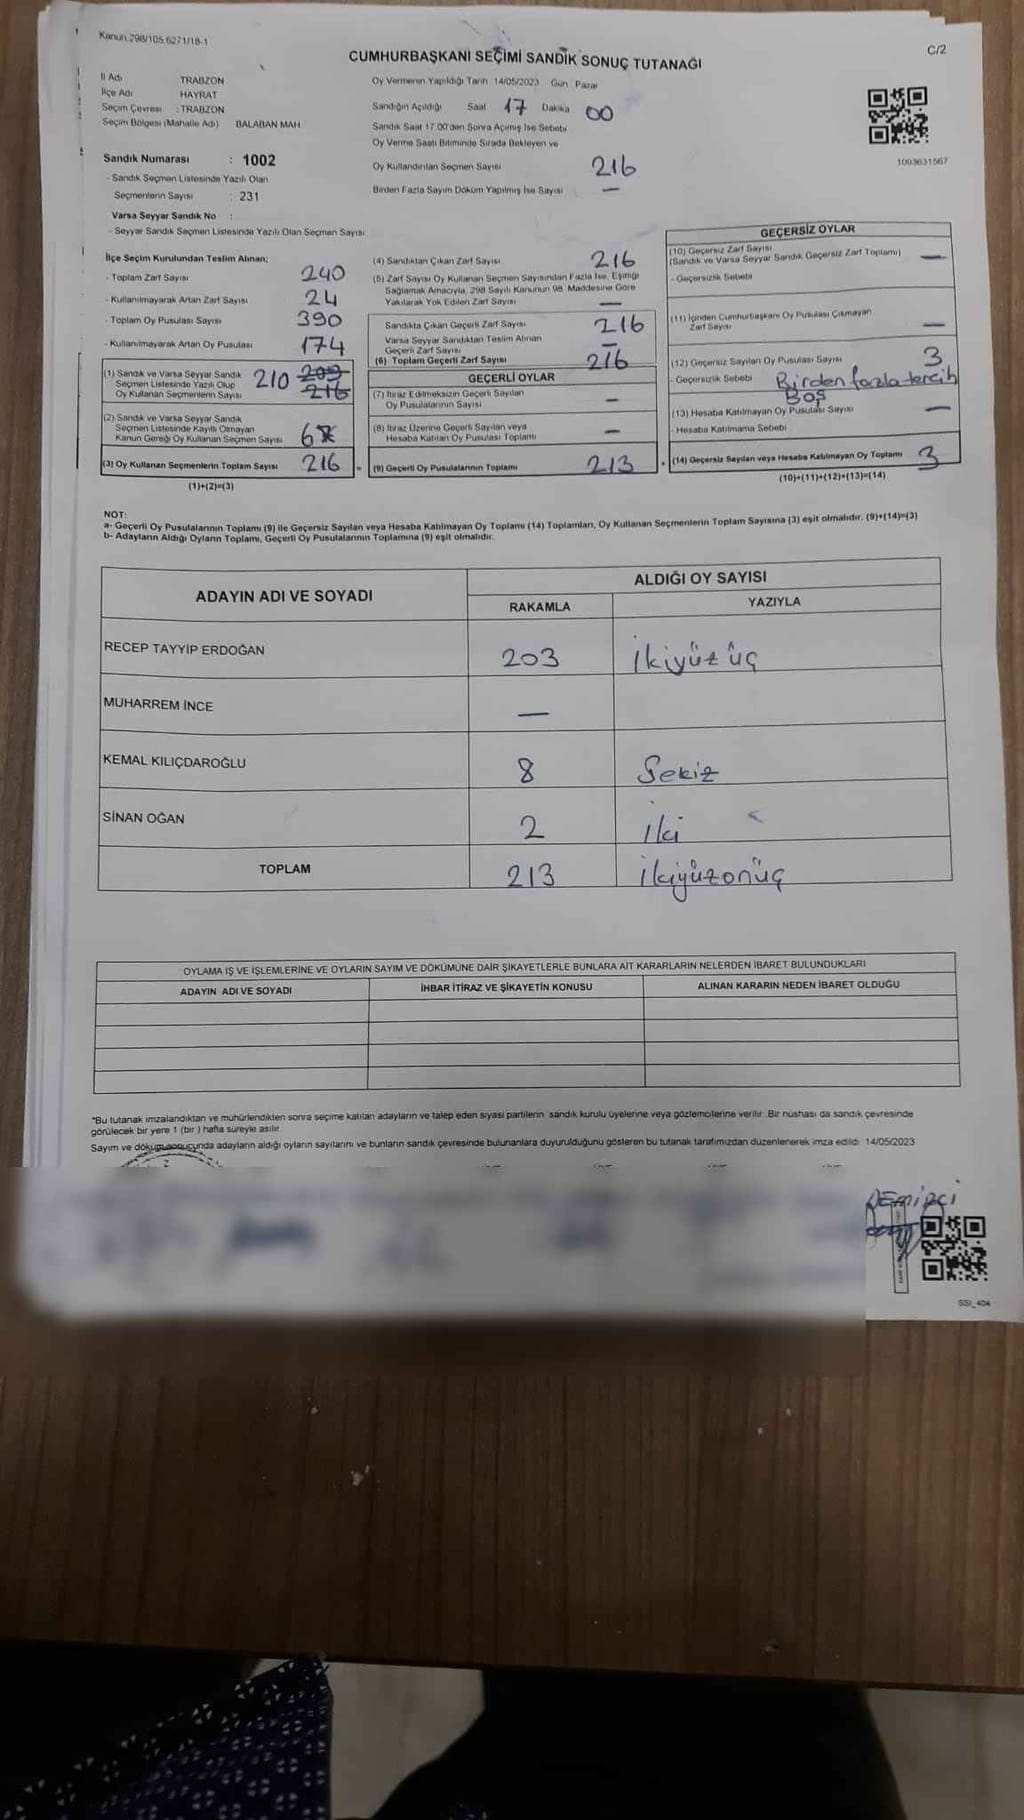 Kanun 298/105 6271/18-1
C/2
CUMHURBAŞKANI SEÇİMİ SANDIK SONUÇ TUTANAĞI
İl Adı TRABZON
İlçe Adı HAYRAT
Seçim Çevresi : TRABZON
Seçim Bölgesi (Mahalle Adı) BALABAN MAH
Sandık Numarası : 1002
- Sandık Seçmen Listesinde Yazılı Olan
Seçmenlerin Sayısı : 231
Varsa Seyyar Sandık No :
- Seyyar Sandık Seçmen Listesinde Yazılı Olan Seçmen Sayısı
Oy Vermenin Yapıldığı Tarih 14/05/2023 Gün Pazar
Sandığın Açıldığı Saat 17 Dakika 00
Sandık Saat 17.00'den Sonra Açılmış İse Sebebi
Oy Verme Saati Bitiminde Sırada Bekleyen ve
Oy Kullandırılan Seçmen Sayısı 216
Birden Fazla Sayım Döküm Yapılmış İse Sayısı —
1093631567
İlçe Seçim Kurulundan Teslim Alınan;
- Toplam Zarf Sayısı 240
- Kullanılmayarak Artan Zarf Sayısı 24
- Toplam Oy Pusulası Sayısı 390
- Kullanılmayarak Artan Oy Pusulası 174
(1) Sandık ve Varsa Seyyar Sandık
Seçmen Listesinde Yazılı Olup
Oy Kullanan Seçmenlerin Sayısı 210 209 216
(2) Sandık ve Varsa Seyyar Sandık
Seçmen Listesinde Kayıtlı Olmayan
Kanun Gereği Oy Kullanan Seçmen Sayısı 6
(3) Oy Kullanan Seçmenlerin Toplam Sayısı 216
(1)+(2)=(3)
(4) Sandıktan Çıkan Zarf Sayısı 216
(5) Zarf Sayısı Oy Kullanan Seçmen Sayısından Fazla İse, Eşitliği
Sağlamak Amacıyla, 298 Sayılı Kanunun 98. Maddesine Göre
Yakılarak Yok Edilen Zarf Sayısı —
Sandıkta Çıkan Geçerli Zarf Sayısı 216
Varsa Seyyar Sandıktan Teslim Alınan
Geçerli Zarf Sayısı —
(6) Toplam Geçerli Zarf Sayısı 216
GEÇERLİ OYLAR
(7) İtiraz Edilmeksizin Geçerli Sayılan
Oy Pusulalarının Sayısı —
(8) İtiraz Üzerine Geçerli Sayılan veya
Hesaba Katılan Oy Pusulası Toplamı —
= (9) Geçerli Oy Pusulalarının Toplamı 213
GEÇERSİZ OYLAR
(10) Geçersiz Zarf Sayısı
(Sandık ve Varsa Seyyar Sandık Geçersiz Zarf Toplamı) —
- Geçersizlik Sebebi
(11) İçinden Cumhurbaşkanı Oy Pusulası Çıkmayan
Zarf Sayısı —
(12) Geçersiz Sayılan Oy Pusulası Sayısı 3
- Geçersizlik Sebebi Birden fazla tercih
Boş
(13) Hesaba Katılmayan Oy Pusulası Sayısı —
- Hesaba Katılmama Sebebi
+ (14) Geçersiz Sayılan veya Hesaba Katılmayan Oy Toplamı 3
(10)+(11)+(12)+(13)=(14)
NOT:
a- Geçerli Oy Pusulalarının Toplamı (9) ile Geçersiz Sayılan veya Hesaba Katılmayan Oy Toplamı (14) Toplamları, Oy Kullanan Seçmenlerin Toplam Sayısına (3) eşit olmalıdır. (9)+(14)=(3)
b- Adayların Aldığı Oyların Toplamı, Geçerli Oy Pusulalarının Toplamına (9) eşit olmalıdır.
ADAYIN ADI VE SOYADI ALDIĞI OY SAYISI
RAKAMLA YAZIYLA
RECEP TAYYİP ERDOĞAN 203 İkiyüz üç
MUHARREM İNCE —
KEMAL KILIÇDAROĞLU 8 Sekiz
SİNAN OĞAN 2 İki
TOPLAM 213 İkiyüzonüç
OYLAMA İŞ VE İŞLEMLERİNE VE OYLARIN SAYIM VE DÖKÜMÜNE DAİR ŞİKAYETLERLE BUNLARA AİT KARARLARIN NELERDEN İBARET BULUNDUKLARI
ADAYIN ADI VE SOYADI İHBAR İTİRAZ VE ŞİKAYETİN KONUSU ALINAN KARARIN NEDEN İBARET OLDUĞU
*Bu tutanak imzalandıktan ve mühürlendikten sonra seçime katılan adayların ve talep eden siyasi partilerin sandık kurulu üyelerine veya gözlemcilerine verilir. Bir nüshası da sandık çevresinde
görülecek bir yere 1 (bir) hafta süreyle asılır.
Sayım ve döküm sonucunda adayların aldığı oyların sayılarını ve bunların sandık çevresinde bulunanlara duyurulduğunu gösteren bu tutanak tarafımızdan düzenlenerek imza edildi. 14/05/2023
DEMİRCİ
SSI_404